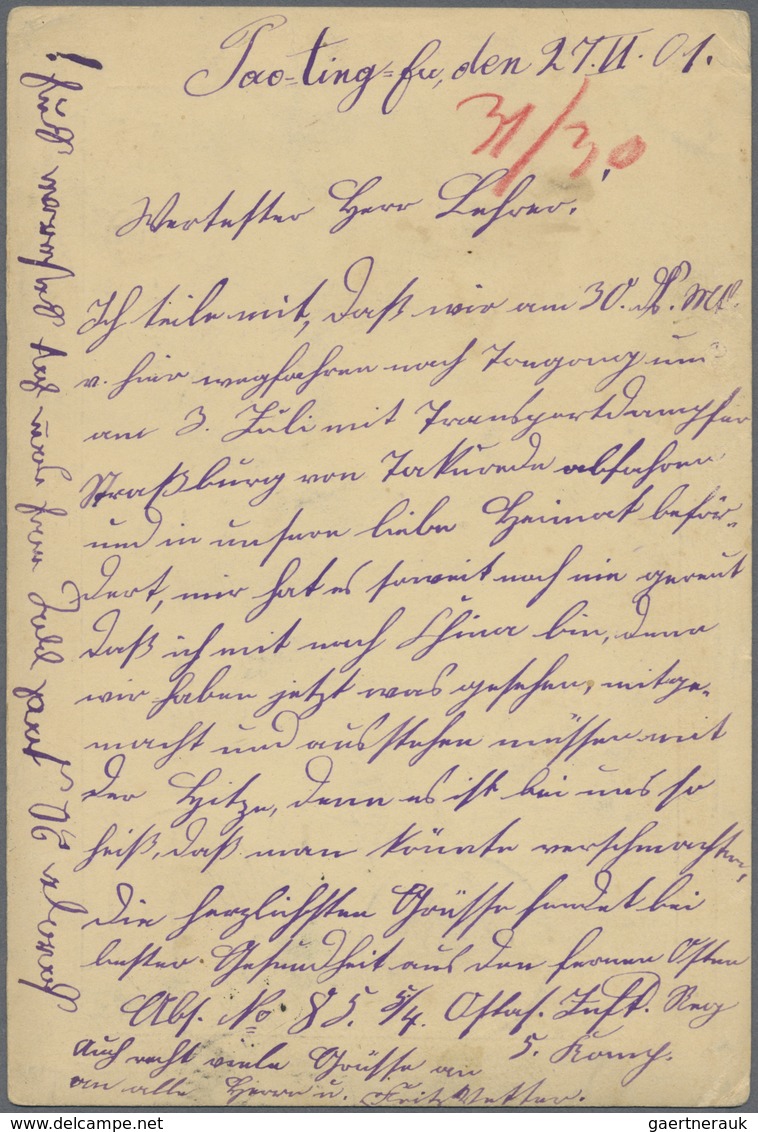 Pao=ting=fu, den 27.VI.01.
31/30
Wertester Herr Lehrer!
Ich teile mit, daß wir am 30. ds. Mt.
v. hier wegfahren nach Tongong und
am 3. Juli mit Transportdampfer
Straßburg von Takureede abfahren
und in unsere liebe Heimat beför-
dert, mir hat es soweit noch nie gereut
daß ich mit nach China bin, denn
wir haben jetzt was gesehen, mitge-
macht und ausstehen müssen mit
der Hitze, denn es ist bei uns so
heiß, daß man könnte verschmachten,
die herzlichsten Grüsse sendet bei
bester Gesundheit aus den fernen Osten
Abs. No 85. 5/4. Ostas. Inft. Reg
5. Komp.
auch recht viele Grüsse an
an alle Herrn u. Fritz Vetter.